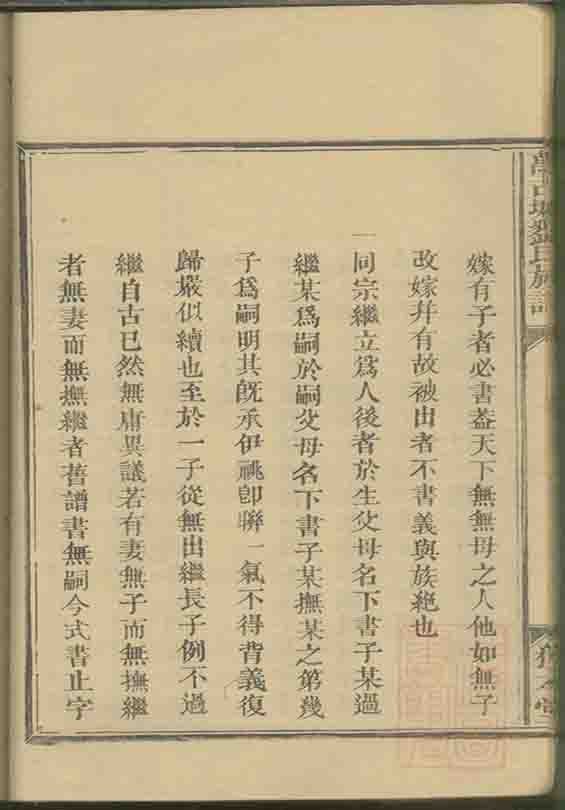 嫁有子者必書葢天下無無母之人他如無子
改嫁幷有故被出者不書義與族絶也
一同宗繼立爲人後者於生父母名下書子某過
繼某爲嗣於嗣父母名下書子某撫某之第幾
子爲嗣明其旣承伊祧卽聯一氣不得背義復
歸嚴似續也至於一子從無出繼長子例不過
繼自古已然無庸異議若有妻無子而無撫繼
者無妻而無撫繼者舊譜書無嗣今式書止字